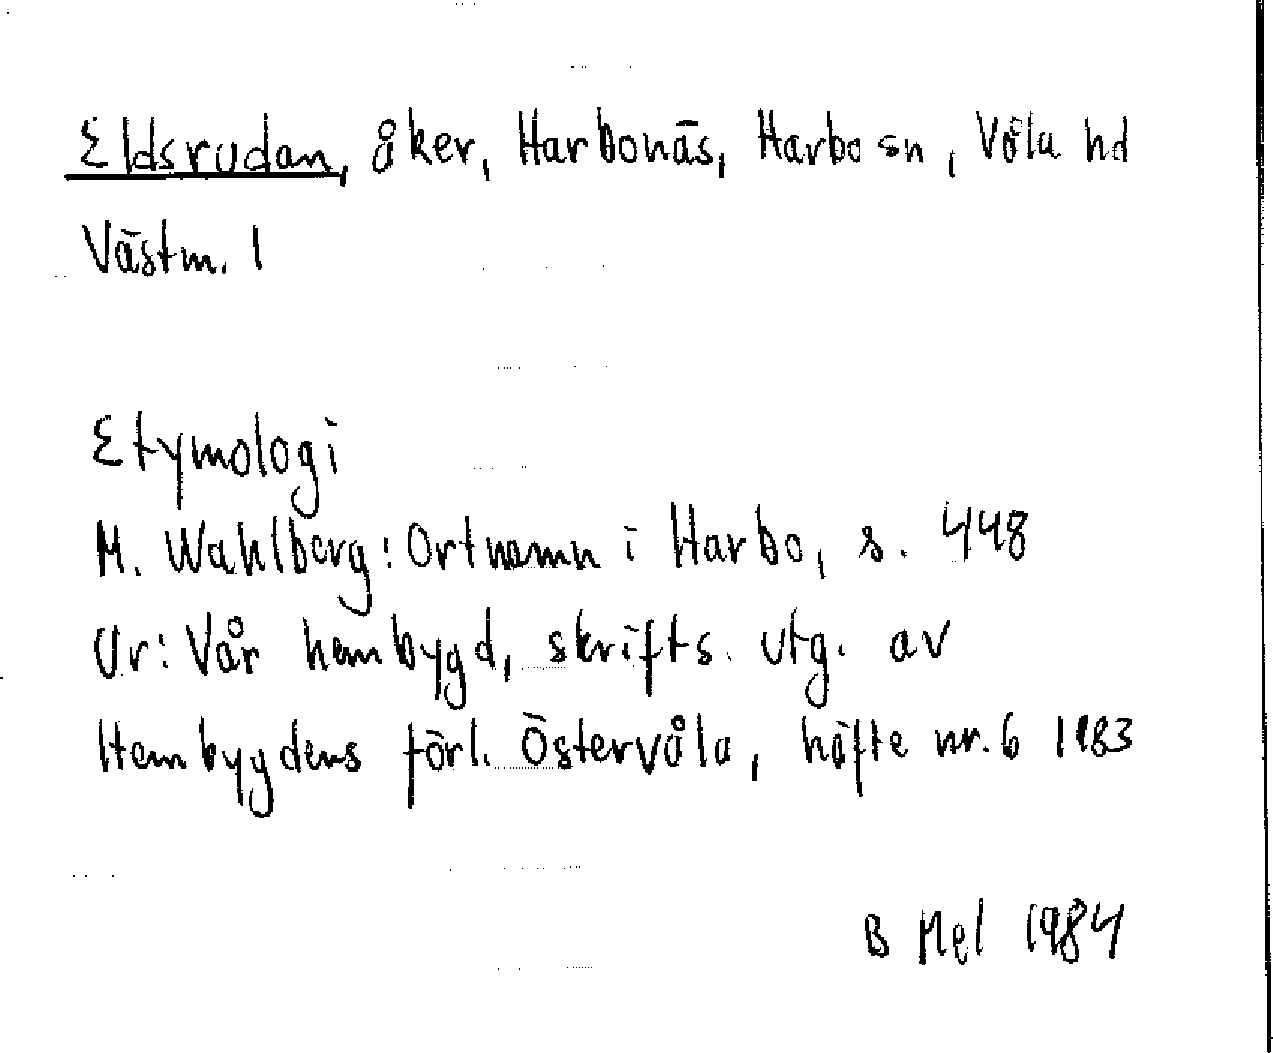 Eldsrudan, åker, Harbonäs, Harbo sn, Våla hd
Västm. l
Etymologi
M. Wahlberg: Ortnamn i Harbo, s. 448
Ur: Vår hembygd, skrifts. utg. av
Hembygdens förl. Östervåla, häfte nr. 6 1983
B Mel 1984